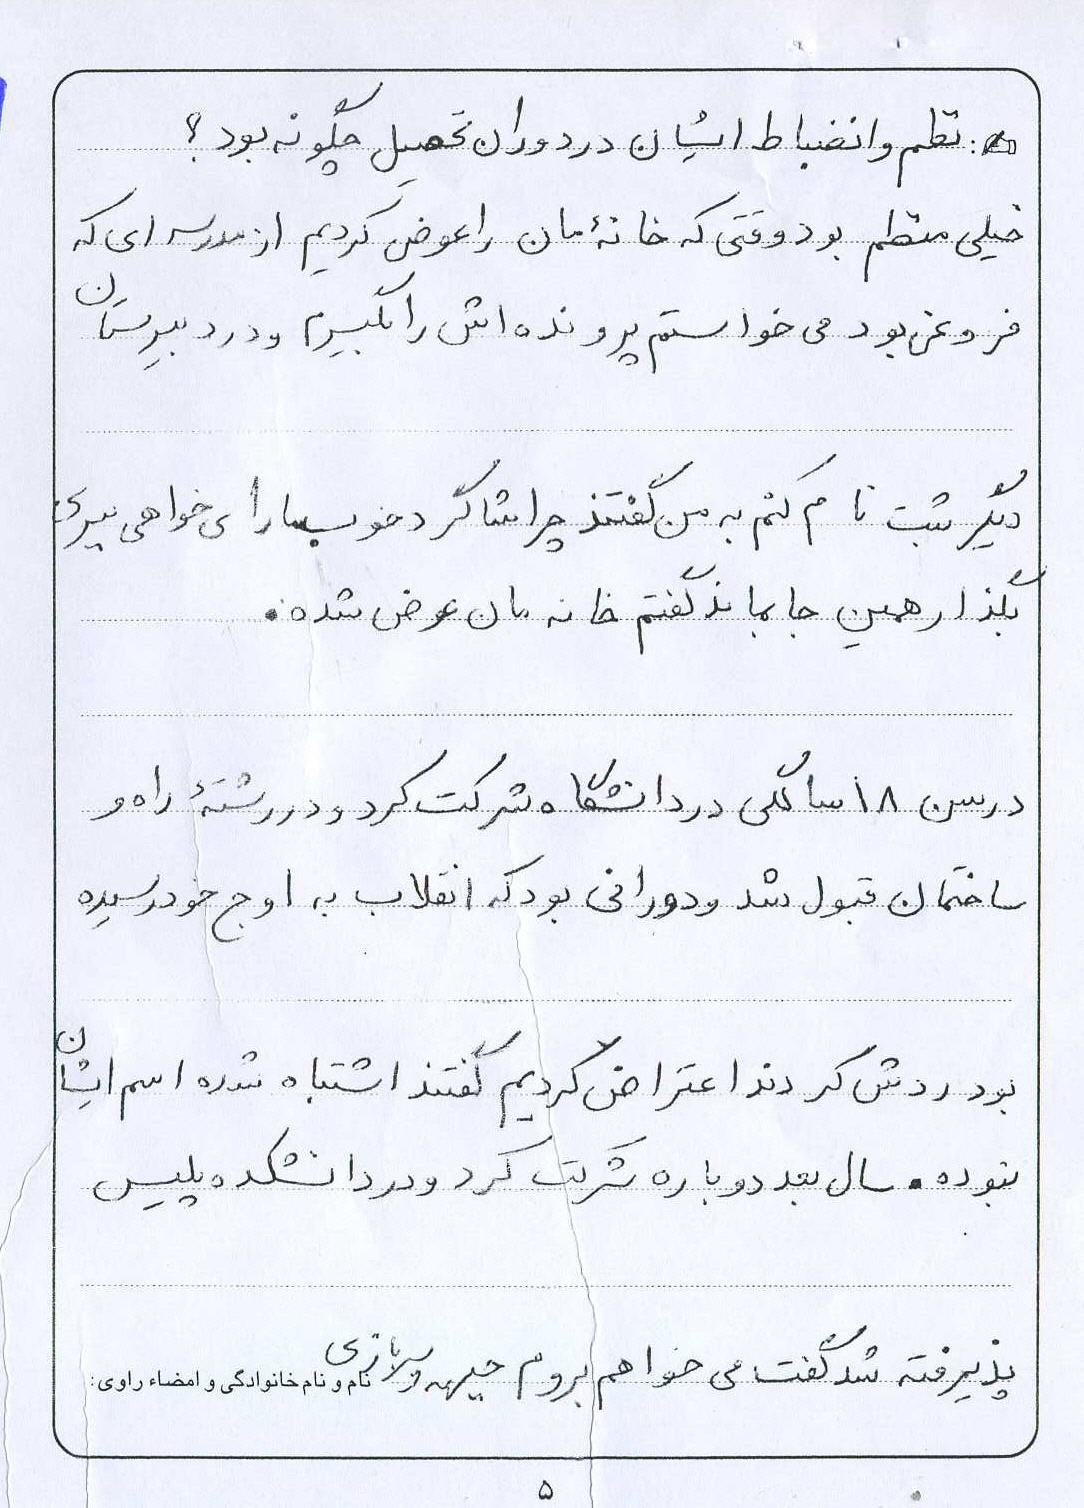 : نظم و انضباط ایشان در دوران تحصیل چگونه بود؟
خیلی منظم بود وقتی که خانهٔ مان را عوض کردیم از مدرسه ای که
فروغی بود می خواستم پرونده اش را بگیرم و در دبیرستان
دیگر ثبت نام کنم به من گفتند چرا شاگرد خوب ما را ی خواهی ببری
بگذار همین جا بماند گفتم خانه مان عوض شده.
در سن ۱۸ سالگی در دانشگاه شرکت کرد و در رشتهٔ راه و
ساختمان قبول شد و دورانی بود که انقلاب به اوج خود رسیده
بود ردش کردند اعتراض کردیم گفتند اشتباه شده اسم ایشان
نبوده. سال بعد دوباره شرکت کرد و در دانشکده پلیس
پذیرفته شد گفت می خواهم بروم جبهه و سربازی
نام و نام خانوادگی و امضاء راوی:
۵